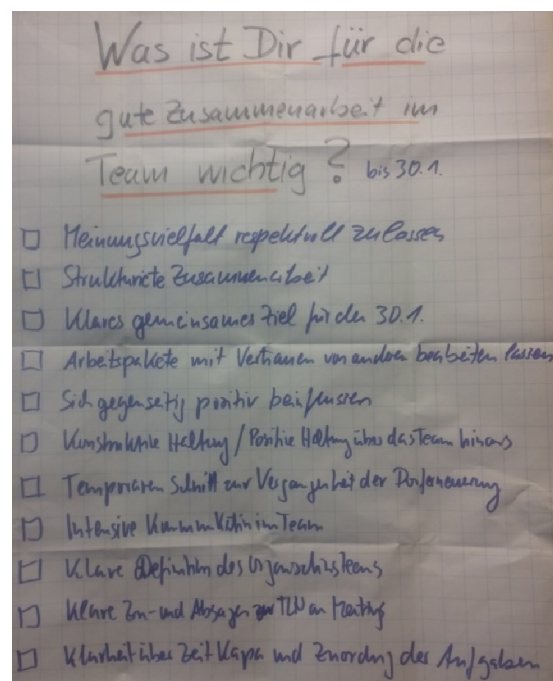 Was ist Dir für die
gute Zusammenarbeit im
Team wichtig? bis 30.1.
Meinungsvielfalt respektvoll zulassen
Strukturierte Zusammenarbeit
Klares gemeinsames Ziel für den 30.1.
Arbeitspakete mit Vertrauen von anderen bearbeiten lassen
Sich gegenseitig positiv beinflussen
Konstruktive Haltung / Positive Haltung über das Team hinaus
Temporären Schnitt zur Vergangenheit der Dorferneuerung
Intensive Kommunikation im Team
Klare Definition des Organisationsteams
Klare Zu- und Absagen zur TLN an Meetings
Klarheit über Zeit Kapa und Zuordnung der Aufgaben